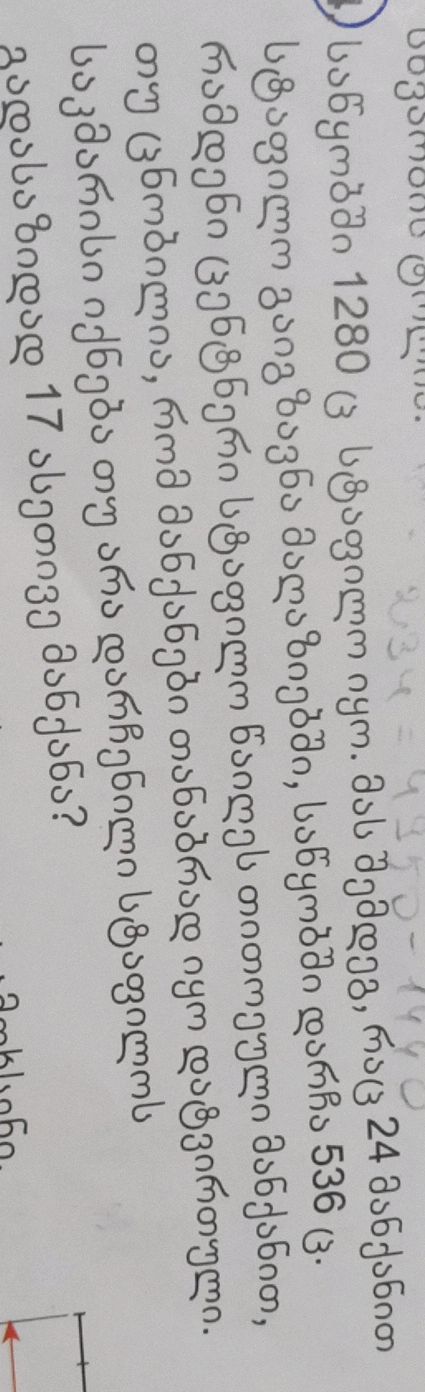 საწყობში 1280 ც სტაფილო იყო. მას შემდეგ, რაც 24 მანქანით
სტაფილო გაიგზავნა მაღაზიებში, საწყობში დარჩა 536 ც.
რამდენი ცენტნერი სტაფილო წაიღეს თითოეული მანქანით,
თუ ცნობილია, რომ მანქანები თანაბრად იყო დატვირთული.
საკმარისი იქნება თუ არა დარჩენილი სტაფილოს
გადასაზიდად 17 ასეთივე მანქანა?